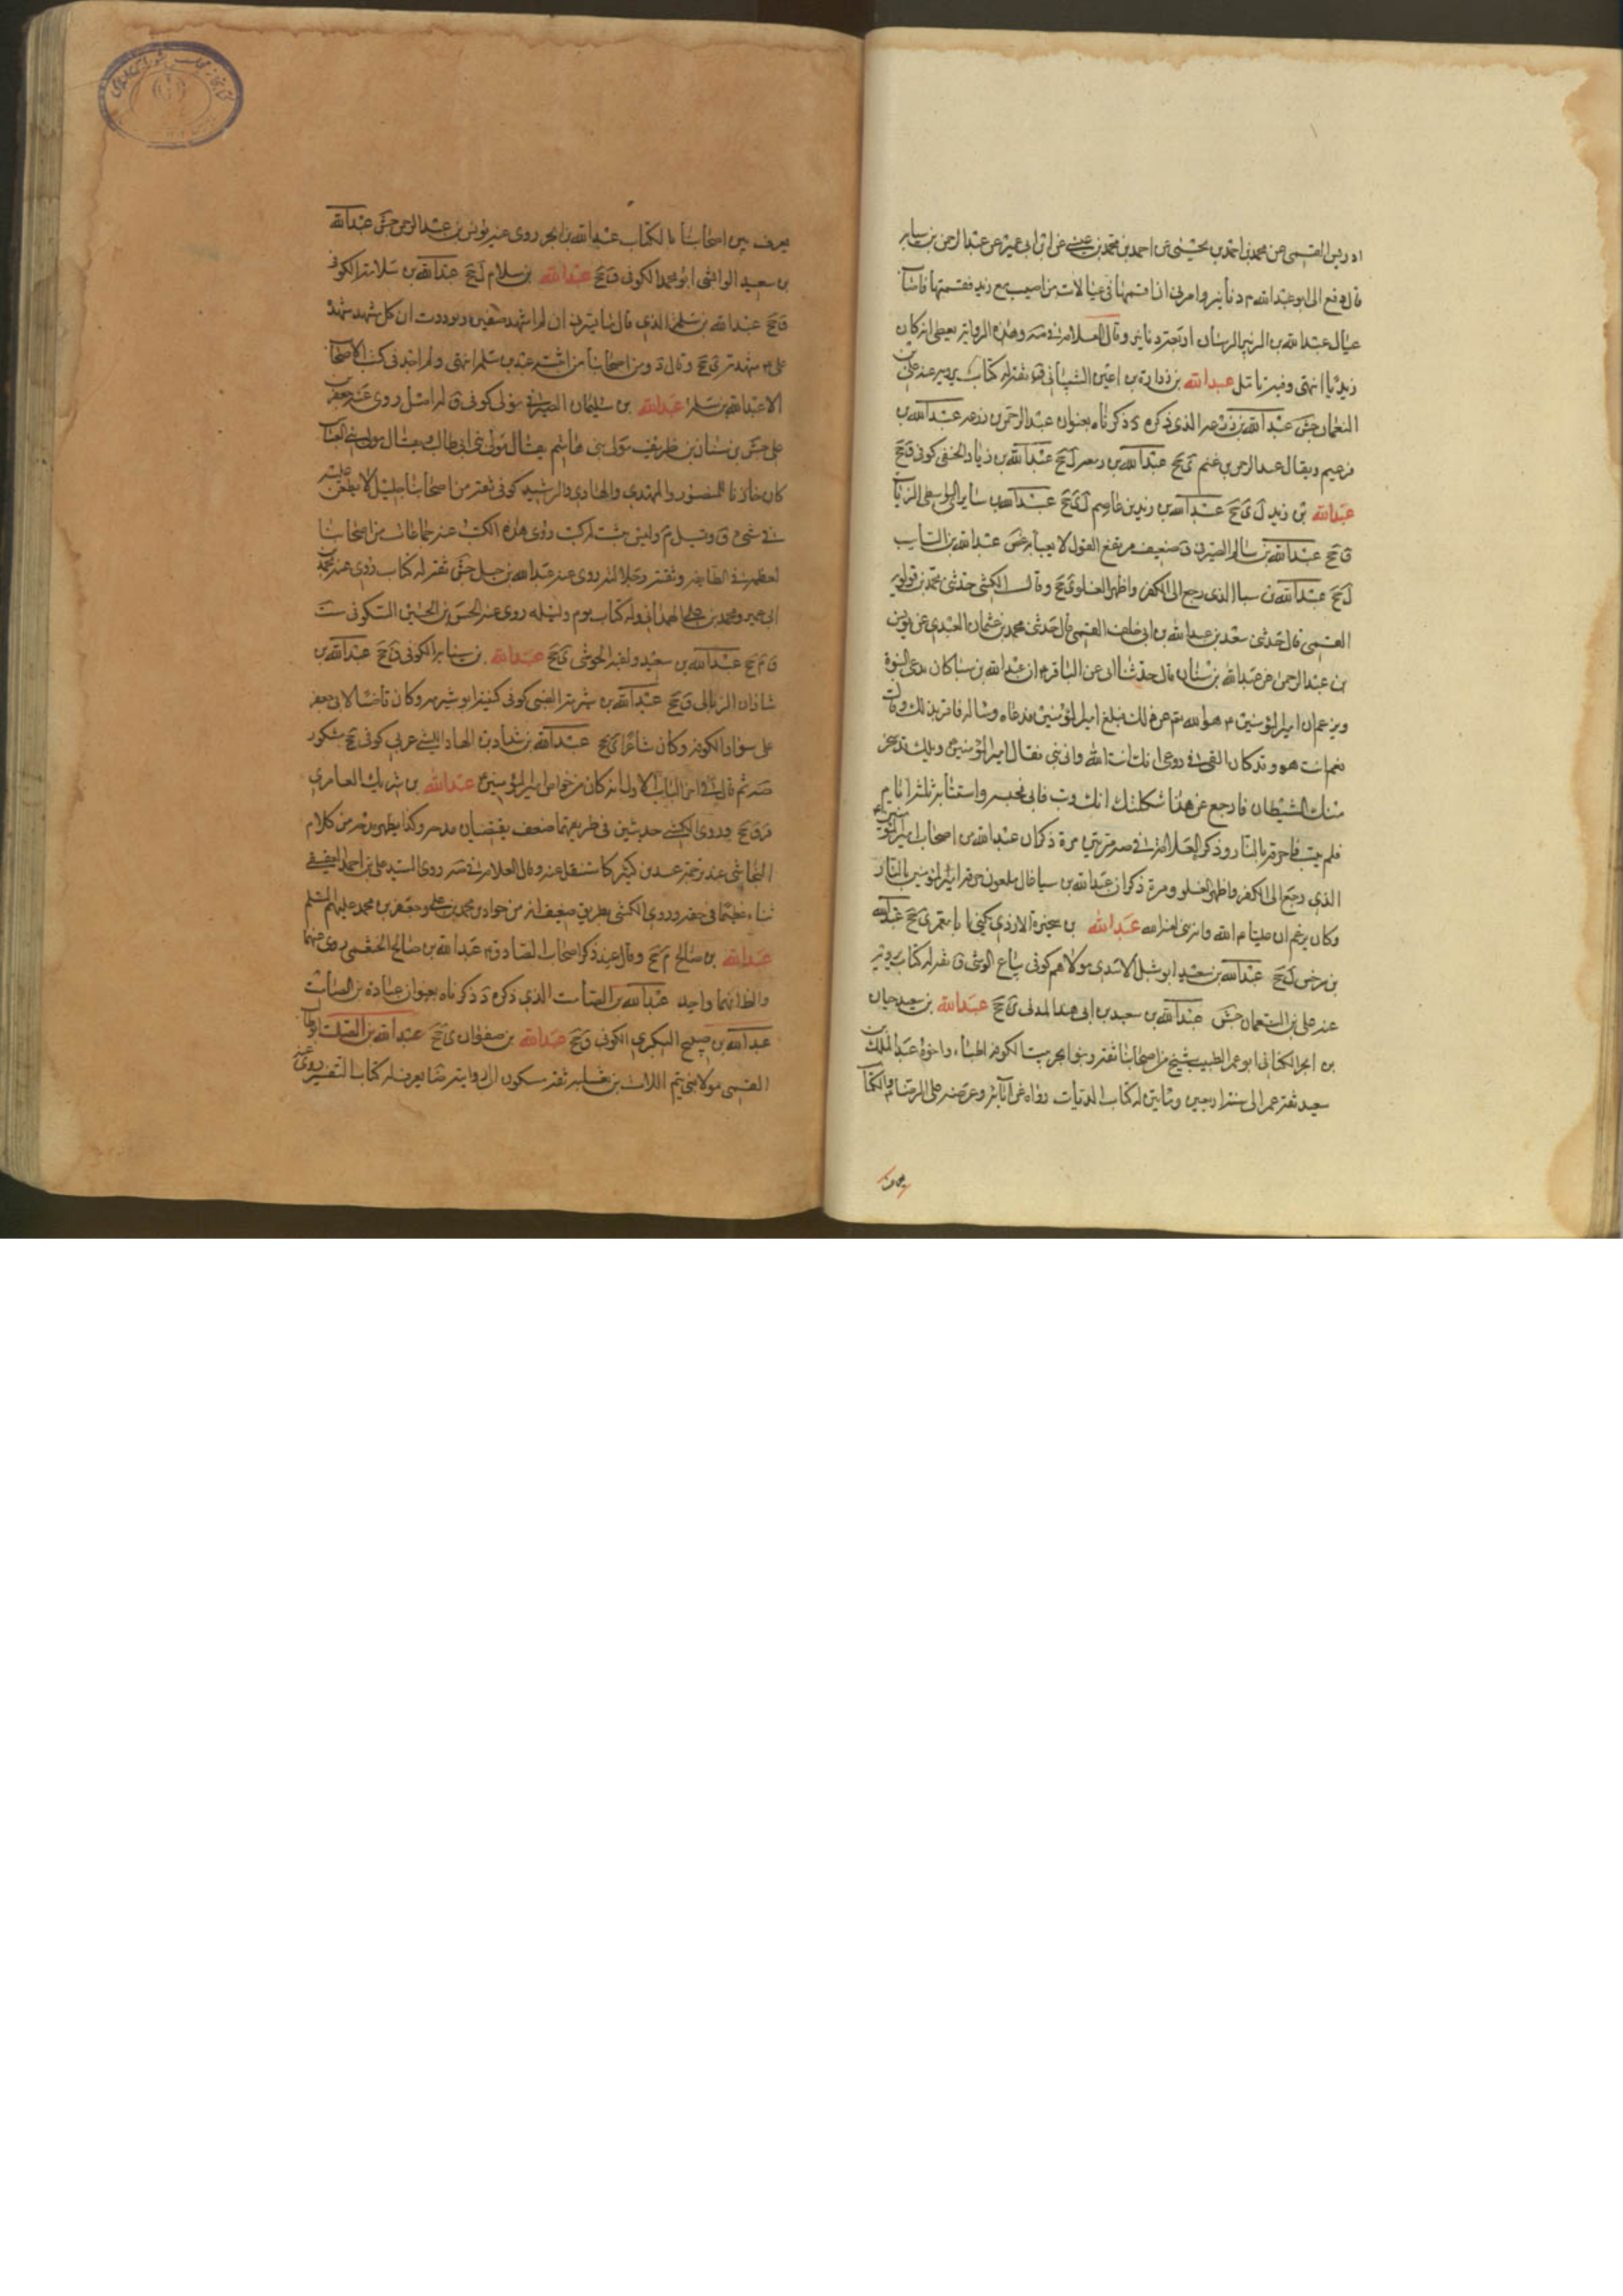 ادريس القمي عن محمد بن احمد بن يحيى عن احمد بن محمد بن عيسى عن ابن ابي عمير عن عبد الرحمن بن سيابه
قال دفع الى ابو عبد الله ع دنانير وامرني ان اقسمها في عيالات من اصيب مع زيد فقسمتها فاصاب
عيال عبد الله بن الزبير الرسان اربعة دنانير وقال العلامة في صه وهذه الرواية يعطى انه كان
زيديا انتهى وفيه تامل عبدالله بن زرارة بن اعين الشيباني ق ثقة له كتاب يرويه عنه علي بن
النعمان جش عبد الله بن زرعه الذي ذكره ى ذكرناه بعنوان عبد الرحمن بن زرعه عبد الله بن
زعيم ويقال عبد الرحمن بن غنم ى جخ عبد الله بن زمعه ل جخ عبد الله بن زياد الحنفي كوفي ق جخ
عبدالله بن زيد ل ى جخ عبد الله بن زيد بن عاصم ل ى جخ عبد الله بن سابري الواسطي الزيات
ق جخ عبد الله بن سالم الصيرفي ق ضعيف مرتفع القول لا يعبأ به غض عبد الله بن السايب
ل جخ عبد الله بن سبا الذي رجع الى الكفر واظهر الغلو ى جخ وقال الكشي حدثني محمد بن قولويه
القمي قال حدثني سعد بن عبد الله بن ابي خلف القمي قال حدثني محمد بن عثمان العبدي عن يونس
بن عبد الرحمن عن عبد الله بن سنان قال حدثنا ابي عن الباقر ع ان عبد الله بن سبا كان يدعي النبوة
ويزعم ان امير المؤمنين ع هو الله تع عن ذلك فبلغ امير المؤمنين فدعاه وساله فاقر بذلك وقال
نعم انت هو وقد كان القي في روعي انك انت الله واني نبي فقال امير المؤمنين ع ويلك قد سخر
منك الشيطان فارجع عن هذا ثكلتك امك وتب فابى فحبسه واستتابه ثلثة ايام
فلم يتب فاحرقه بالنار وذكر العلامة في صه مرتين مرة ذكر ان عبد الله من اصحاب امير المؤمنين ع
الذي رجع الى الكفر واظهر الغلو ومرة ذكر ان عبد الله بن سبا غال ملعون حرقه امير المؤمنين بالنار
وكان يزعم ان عليا ع اله وانه نبي لعنه الله عبدالله بن سخبرة الازدي يكنى ابا معمر ى جخ عبد الله
بن سرخس ل جخ عبد الله بن سعيد ابو شبل الاسدي مولاهم كوفي بياع الوشي ق ثقة له كتاب يرويه
عنه علي بن النعمان جش عبد الله بن سعيد بن ابي هند المدني ى جخ عبدالله بن سعيد بن حيان
بن ابجر الكناني ابو عمر الطبيب شيخ من اصحابنا ثقة وبنو ابجر بيت بالكوفة اطباء واخوه عبد الملك بن
سعيد ثقة عمر الى سنة اربعين ومأتين له كتاب الديات رواه عن ابائه وعرضه على الرضا ع والكتاب
يعرف
يعرف بين اصحابنا بالكتاب عبد الله بن ابجر روى عنه يونس بن عبد الرحمن جش عبد الله
بن سعيد الوابشي ابو محمد الكوفي ق جخ عبدالله بن سلام ل جخ عبد الله بن سلامة الكوفي
ق جخ عبد الله بن سلمة الذي قال ما يسرني ان لم اشهد صفين ولوددت ان كل مشهد شهده
علي ع شهدته ى جخ وقال د ومن اصحابنا من اثبته عبد بن سلم انتهى ولم اجد في كتب الاصحاب
الا عبد الله بن سلمة عبدالله بن سليمان الصيرفي مولى كوفي ق له اصل روى عنه جعفر بن
علي جش بن سنان بن طريف مولى بني هاشم يقال مولى بني ابي طالب ويقال مولى بني العباس
كان خازنا للمنصور والمهدي والهادي والرشيد كوفي ثقة من اصحابنا جليل لا يطعن عليه
في شيء ق وقيل م وليس بثبت له كتب روى هذه الكتب عنه جماعات من اصحابنا
لعظمه في الطايفة وثقته وجلالته روى عنه عبد الله بن جبل جش ثقة له كتاب روى عنه محمد بن
ابي عمير ومحمد بن علي الهمداني وله كتاب يوم وليلة روى عنه الحسن بن الحسين السكوني ست
ق م جخ عبد الله بن سعيد ولقبه الحوشي ى جخ عبدالله بن سيابة الكوفي ق جخ عبد الله بن
شاذان الزبالي ق جخ عبد الله بن شبرمة الضبي كوفي كنيته ابو شبرمه وكان قاضيا لابي جعفر
على سواد الكوفة وكان شاعرا ى جخ عبد الله بن شداد بن الهاد الليثي عربي كوفي جخ مشكور
صه ثم قال في اخر الباب الاول انه كان من خواص امير المؤمنين ع عبدالله بن شريك العامري
قر ق جخ وروى الكشي حديثين في طريقهما ضعف يقتضيان مدحه وكذا يظهر مدحه من كلام
النجاشي عند ترجمة عبيد بن كثير كما سننقل عنه وقال العلامة في صه روى السيد علي بن احمد العقيقي
ثناء عظيما في حقه وروى الكشي بطريق ضعيف انه من حواري محمد بن علي وجعفر بن محمد عليهم السلم
عبدالله بن صالح م جخ وقال عند ذكر اصحاب الصادق ع عبد الله بن صالح الخثعمي روى عنهما
والظ انهما واحد عبد الله بن الصامت الذي ذكره د ذكرناه بعنوان عبادة بن الصامت
عبد الله بن صبيح البكري الكوفي ق جخ عبدالله بن صفوان ى جخ عبد الله بن الصلت ابو طالب
القمي مولا بني تيم اللات بن ثعلبة ثقة مسكون الى روايته ضا يعرف له كتاب التفسير روى عنه